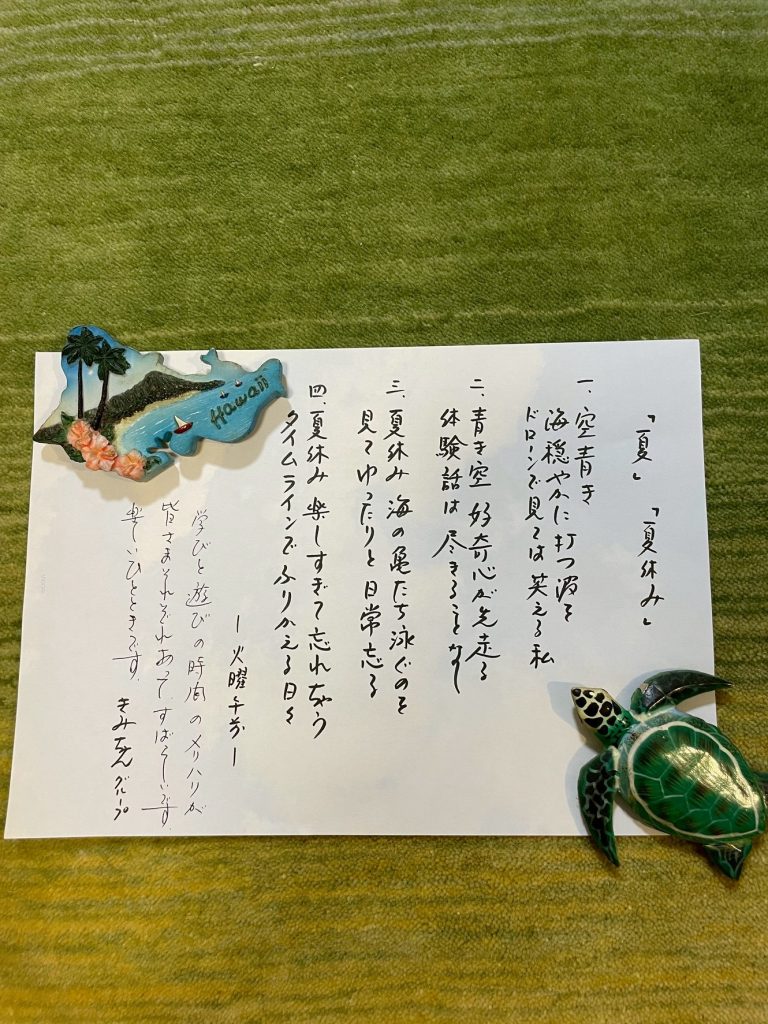 「夏」 「夏休み」
一、空青き
海穏やかに打つ波を
ドローンで見ては笑える私
二、青き空 好奇心が先走る
体験話は 尽きることなし
三、夏休み 海の亀たち泳ぐのを
見てゆったりと日常忘る
四、夏休み 楽しすぎて忘れちゃう
タイムラインでふりかえる日々
ー火曜午前ー
学びと遊びの時間のメリハリが
皆さまそれぞれあって、すばらしいです。
楽しいひとときです。
きみちゃんグループ
Hawaii